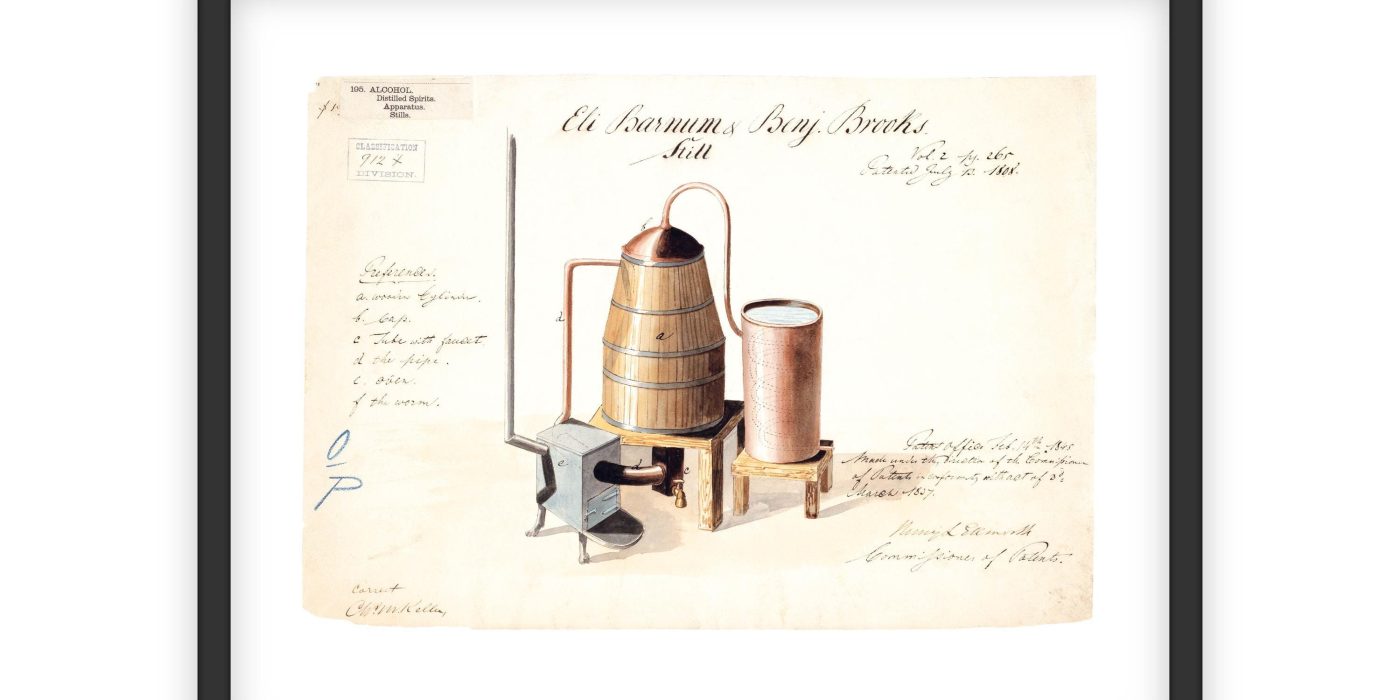 195. ALCOHOL.
Distilled Spirits.
Apparatus.
Stills.
CLASSIFICATION
912
DIVISION.
Eli Barnum & Benj. Brooks.
Still
Vol. 2 pg. 265
Patented July 13. 1808.
References.
a. wooden Cylinder.
b. Cap.
c Tube with faucet
d the pipe.
e. oven.
f the worm.
b
d
a
e
d
c
O
P
Patent Office Feb. 14th 1845
Made under the direction of the Commissioner
of Patents in conformity with act of 3d.
March 1837.
Henry L Ellsworth
Commissioner of Patents.
Correct